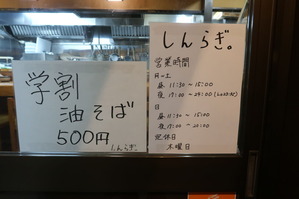 学割
油そば
500円
しんらぎ。
しんらぎ。
営業時間
月〜土
昼 11:30 〜 15:00
夜 17:00 〜 24:00
日
昼 11:30 〜 15:00
定休日
木曜日